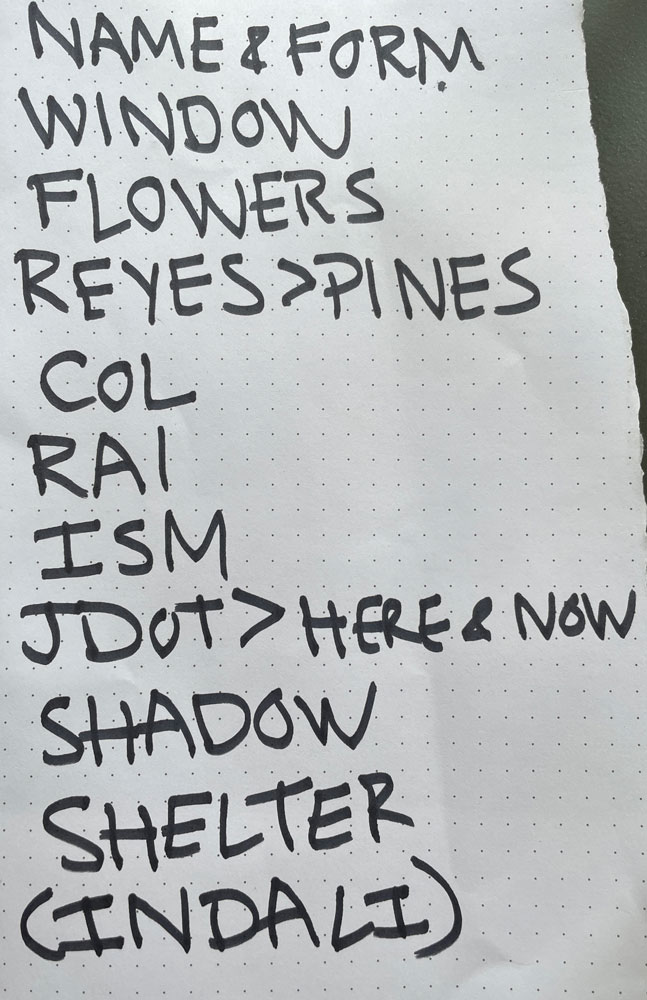 NAME & FORM
WINDOW
FLOWERS
REYES > PINES
COL
RAI
ISM
JDOT > HERE & NOW
SHADOW
SHELTER
(INDALI)